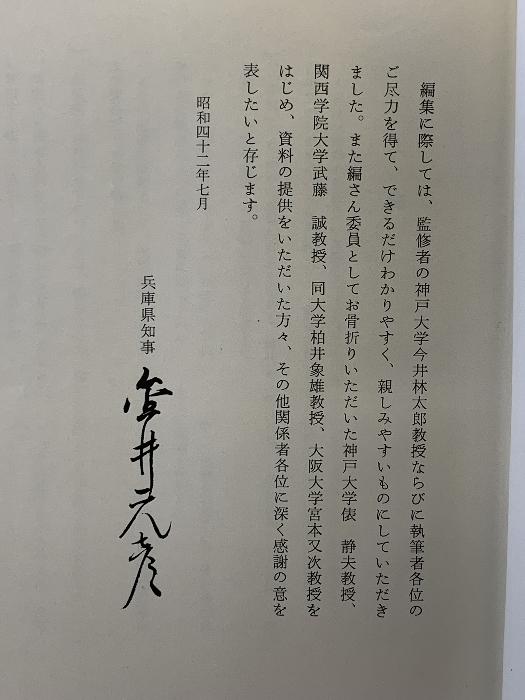 編集に際しては、監修者の神戸大学今井林太郎教授ならびに執筆者各位の
ご尽力を得て、できるだけわかりやすく、親しみやすいものにしていただき
ました。また編さん委員としてお骨折りいただいた神戸大学俵　静夫教授、
関西学院大学武藤　誠教授、同大学柏井象雄教授、大阪大学宮本又次教授を
はじめ、資料の提供をいただいた方々、その他関係者各位に深く感謝の意を
表したいと存じます。
昭和四十二年七月
兵庫県知事　金井元彦